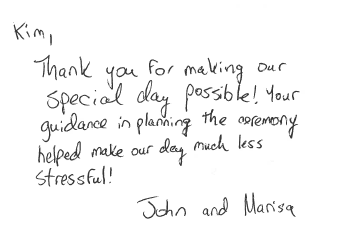 Kim,
Thank you for making our
special day possible! Your
guidance in planning the ceremony
helped make our day much less
stressful!
John and Marisa